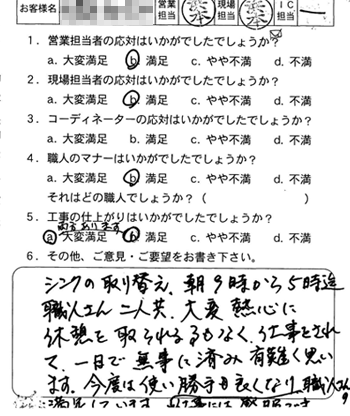 お客様名 営業担当 現場担当 IC担当
1．営業担当者の応対はいかがでしたでしょうか？
a. 大変満足 b. 満足 c. やや不満 d. 不満
2．現場担当者の応対はいかがでしたでしょうか？
a. 大変満足 b. 満足 c. やや不満 d. 不満
3．コーディネーターの応対はいかがでしたでしょうか？
a. 大変満足 b. 満足 c. やや不満 d. 不満
4．職人のマナーはいかがでしたでしょうか？
a. 大変満足 b. 満足 c. やや不満 d. 不満
それはどの職人でしょうか？（ ）
5．工事の仕上がりはいかがでしたでしょうか？
両方あります
a. 大変満足 b. 満足 c. やや不満 d. 不満
6．その他、ご意見・ご要望をお書き下さい。
シンクの取り替え、朝9時から5時迄
職人さん二人共、大変熱心に
休憩を取られるもなく、仕事をされ
て、一日で無事に済み有難く思い
ます。今度は使い勝手も良くなり、職人さん
満足しています